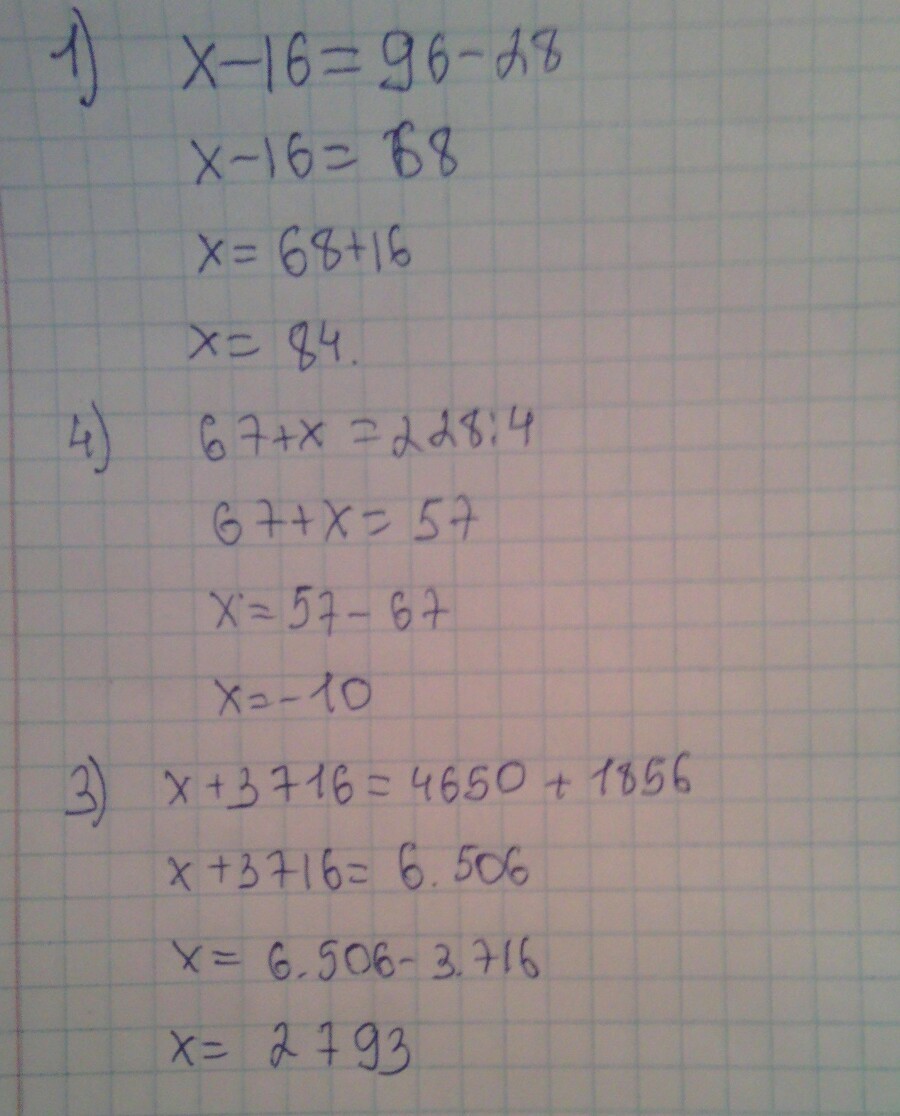 1) x-16=96-28
x-16=68
x=68+16
x=84.
4) 67+x=228:4
67+x=57
x=57-67
x=-10
3) x+3716=4650+1856
x+3716=6.506
x=6.506-3.716
x=2793